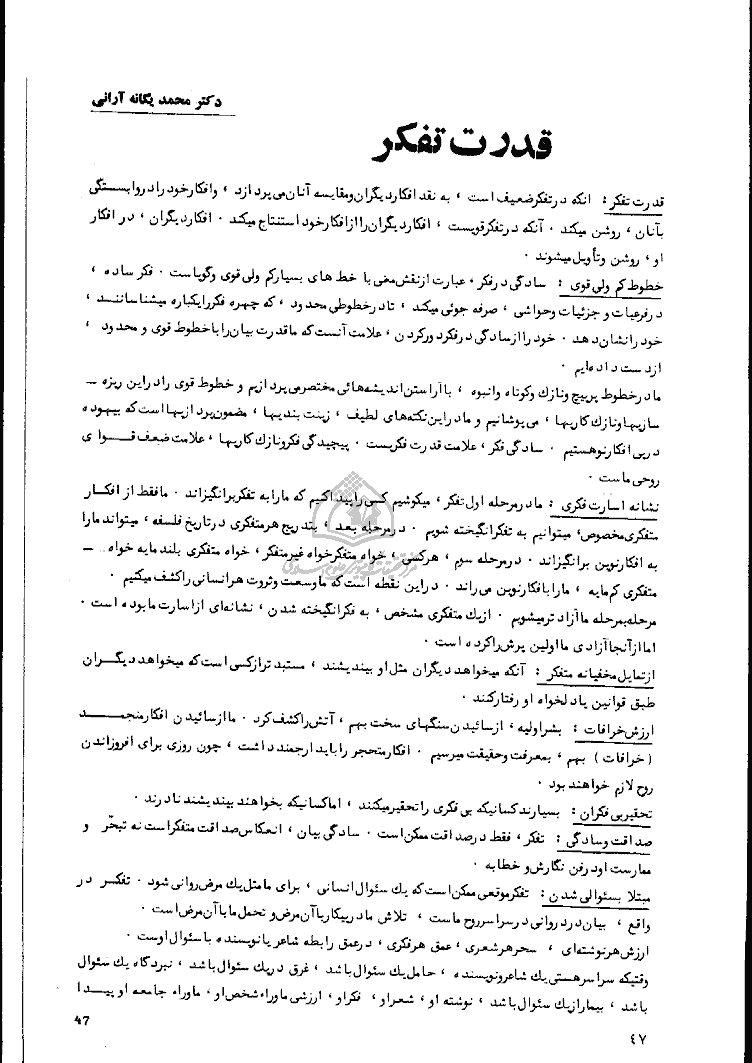 دکتر محمد یگانه آرانی
قدرت تفکر
قدرت تفکر : انکه درتفکرضعیف است ، به نقد افکاردیگران ومقایسه آنان می پردازد ، وافکارخود رادروابستگی
بآنان ، روشن میکند ۰ آنکه درتفکرقویست ، افکاردیگران راازافکارخود استنتاج میکند ۰ افکاردیگران ، در افکار
او ، روشن وتأویل میشوند ۰
خطوط کم ولی قوی : سادگی درفکر ، عبارت ازنقش مغی با خط های بسیارکم ولی قوی وگویاست ۰ فکر ساده ،
درفرعیات و جزئیات وحواشی ، صرفه جوئی میکند ، تادرخطوطی محدود ، که چهره فکررایکباره میشناسانند ،
خود رانشان دهد ۰ خود راازسادگی درفکردورکردن ، علامت آنست که ماقدرت بیان راباخطوط قوی و محدود ،
ازدست داده‌ایم ۰
مادرخطوط پرپیچ ونازك وکوتاه وانبوه ، باآراستن اندیشه‌هائی مختصرمی پردازیم و خطوط قوی رادراین ریزه -
سازیهاونازك کاریها ، می پوشانیم و مادراین نکته‌های لطیف ، زینت بندیها ، مضمون پردازیهااست که بیهوده
درپی افکارنوهستیم ۰ سادگی فکر ، علامت قدرت فکریست ۰ پیچیدگی فکرونازك کاریها ، علامت ضعف قــوا ی
روحی ماست ۰
نشانه اسارت فکری : مادرمرحله اول تفکر ، میکوشیم کسی راپیداکنیم که مارابه تفکربرانگیزاند ۰ مافقط از افکــار
متفکری مخصوص، میتوانیم به تفکرانگیخته شویم ۰ درمرحله بعد ، بتدریج هرمتفکری درتاریخ فلسفه ، میتواند مارا
به افکارنوین برانگیزاند ۰ درمرحله سوم ، هرکسی ، خواه متفکرخواه غیرمتفکر ، خواه متفکری بلند مایه خواه -
متفکری کم مایه ، مارابافکارنوین می راند ۰ دراین نقطه است که ماوسعت وثروت هرانسانی راکشف میکنیم ۰
مرحله بمرحله ماآزاد ترمیشویم ۰ ازیك متفکری مشخص ، به فکرانگیخته شدن ، نشانه‌ای ازاسارت مابوده است ۰
اماازآنجاآزادی مااولین پرش راکرده است ۰
ازتمایل مخفیانه متفکر : آنکه میخواهد دیگران مثل او بیندیشند ، مستبد ترازکسی است که میخواهد دیگــران
طبق قوانین یادلخواه او رفتارکنند ۰
ارزش خرافات : بشراولیه ، ازسائیدن سنگهای سخت بهم ، آتش راکشف کرد ۰ ماازسائیدن افکارمنجمــــد
( خرافات ) بهم ، بمعرفت وحقیقت میرسیم ۰ افکارمتحجر رابایدارجمندداشت ، چون روزی برای افروزاندن
روح لازم خواهند بود ۰
تحقیربی فکران : بسیارند کسانیکه بی فکری راتحقیرمیکنند ، اماکسانیکه بخواهند بیندیشند نادرند ۰
صداقت وسادگی : تفکر ، فقط درصداقت ممکن است ۰ سادگی بیان ، انعکاس صداقت متفکراست نه تبحّر و
ممارست اودرفن نگارش و خطابه ۰
مبتلا بسئوالی شدن : تفکرموقعی ممکن است که یك سئوال انسانی ، برای مامثل یك مرض روانی شود ۰ تفکــر در
واقع ، بیان دردروانی درسراسرروح ماست ، تلاش مادرپیکارباآن مرض و تحمل ماباآن مرض است ۰
ارزش هرنوشته‌ای ، سحرهرشعری ، عمق هرفکری ، درعمق رابطه شاعر یانویسنده باسئوال اوست ۰
وقتیکه سراسرهستی یك شاعرونویسنده ، حامل یك سئوال باشد ، غرق دریك سئوال باشد ، نبردگاه یك سئوال
باشد ، بیمارازیك سئوال باشد ، نوشته او ، شعراو ، فکراو ، ارزشی ماوراء شخص او ، ماوراء جامعه او پیــدا
47
٤٧